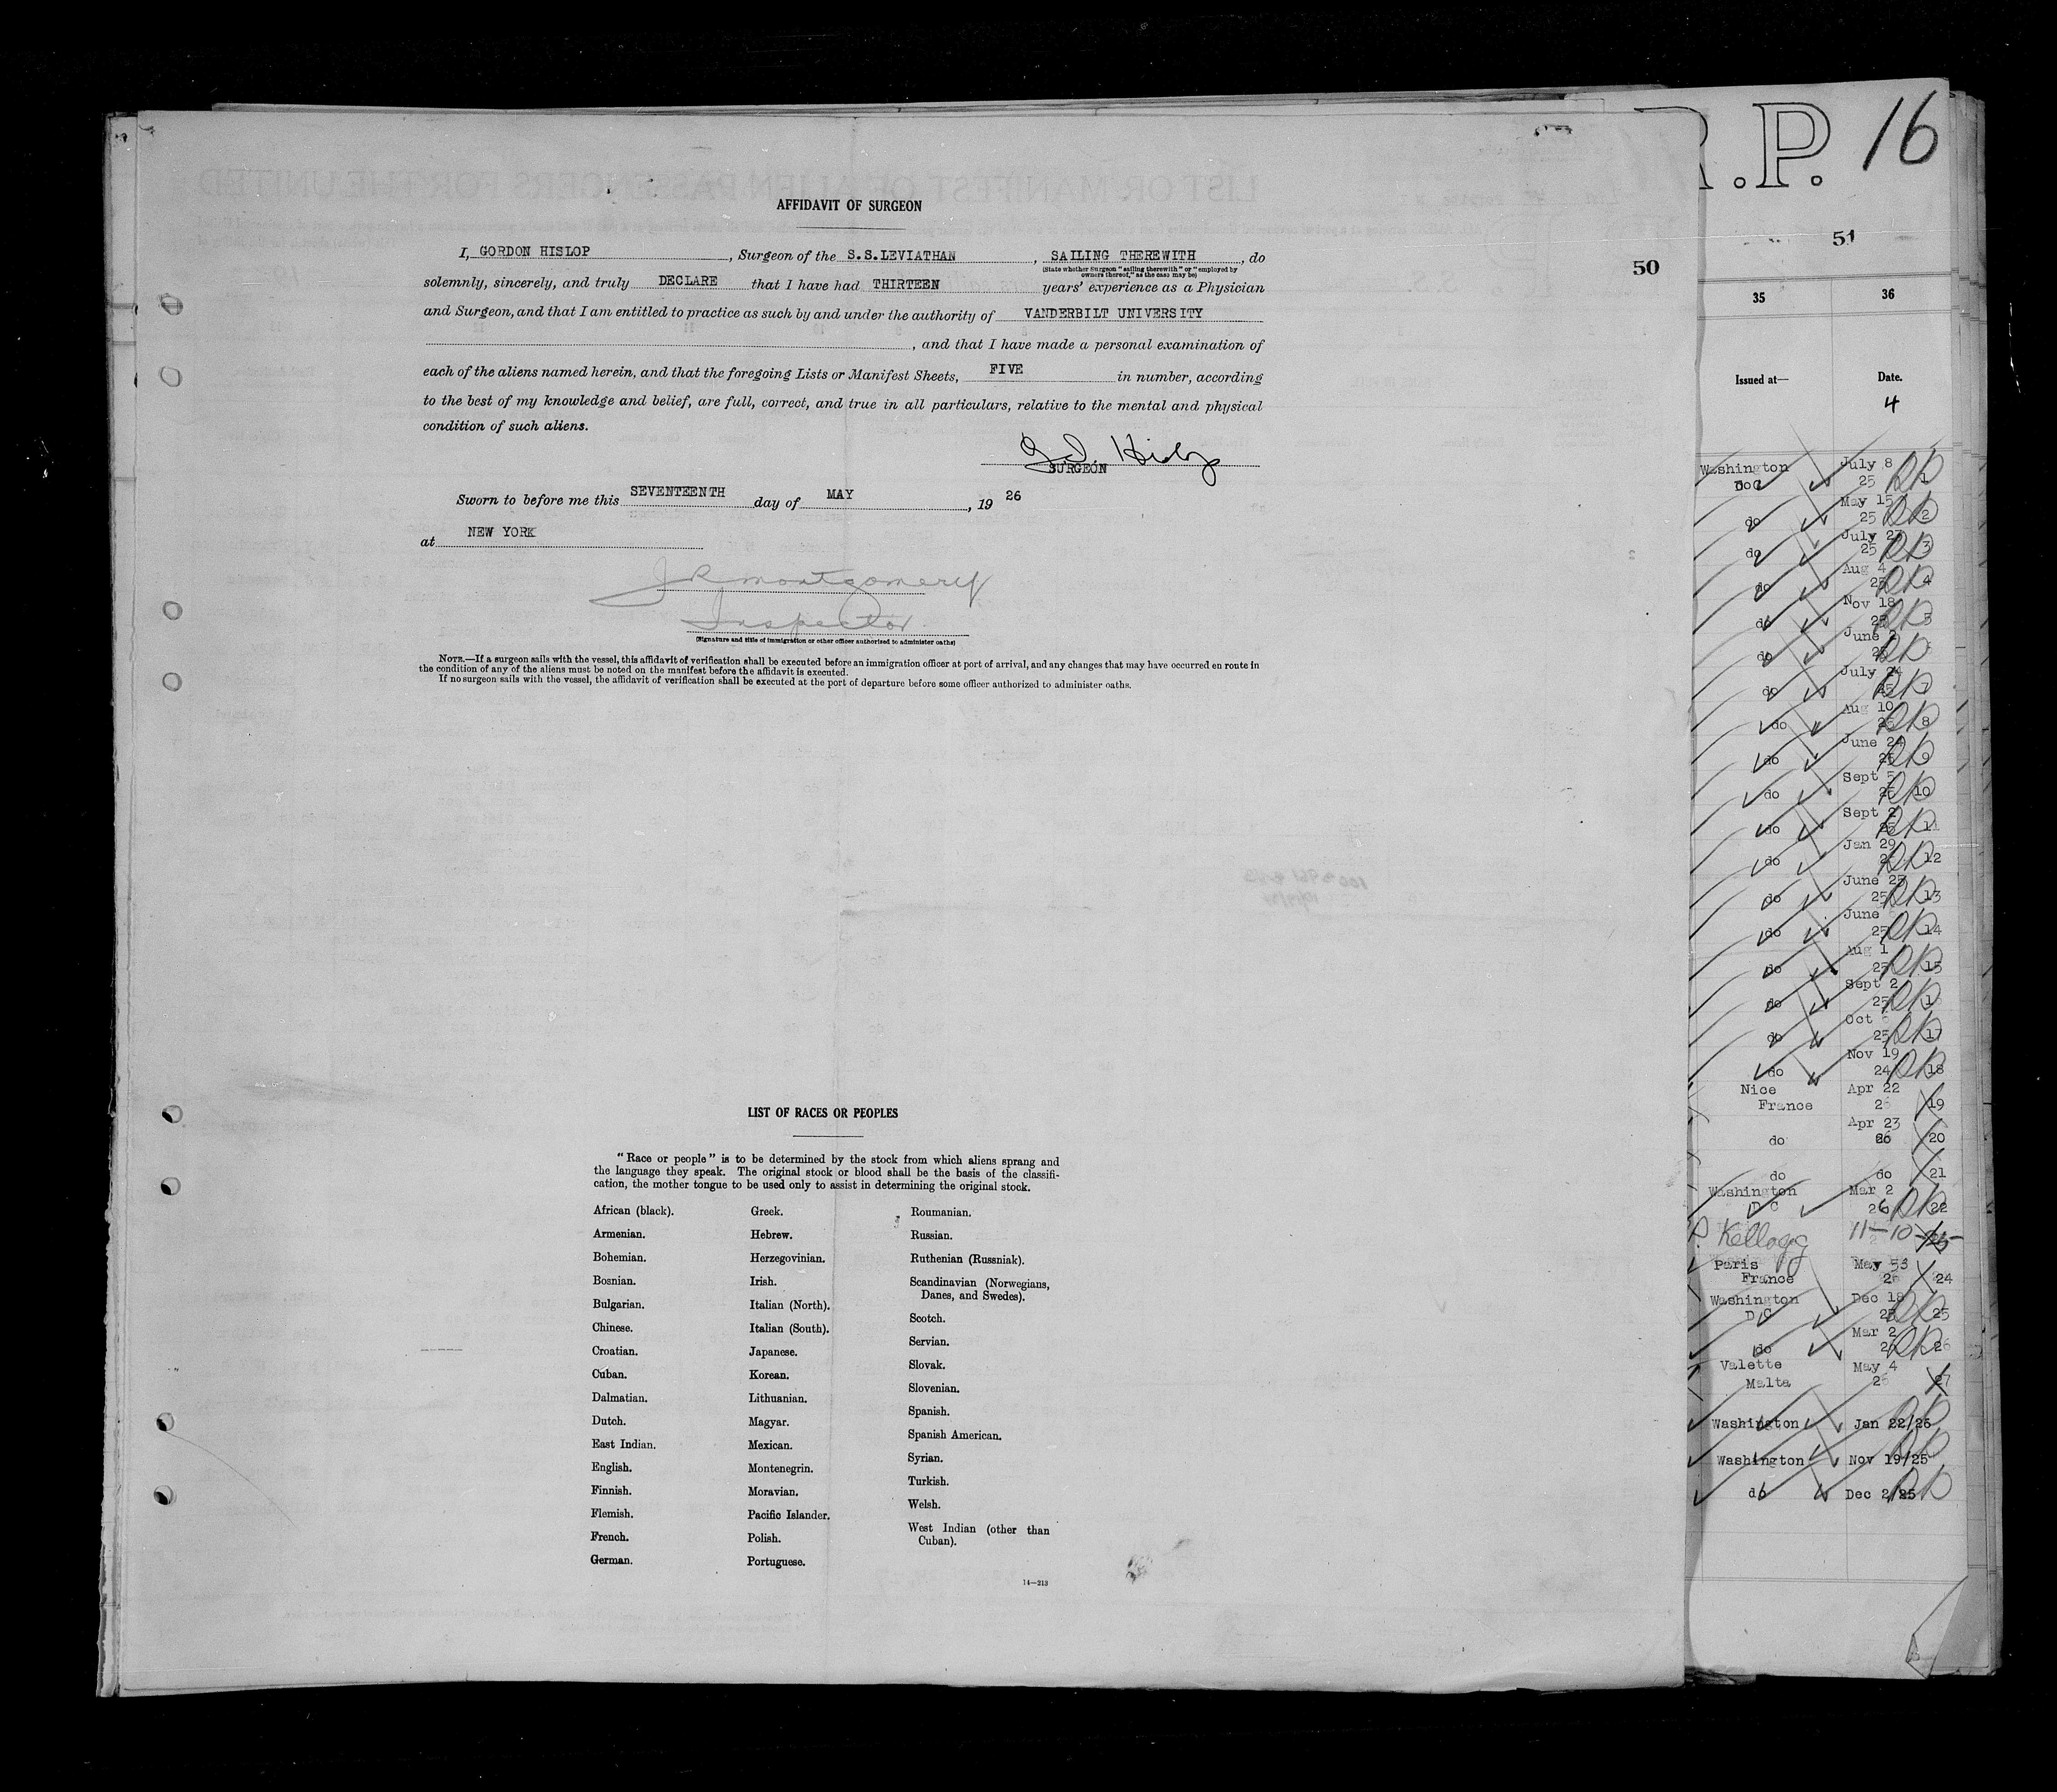 AFFIDAVIT OF SURGEON
I, GORDON HISLOP, Surgeon of the S.S.LEVIATHAN, SAILING THEREWITH, do
(State whether Surgeon "sailing therewith" or "employed by
owners thereof," as the case may be)
solemnly, sincerely, and truly DECLARE that I have had THIRTEEN years' experience as a Physician
and Surgeon, and that I am entitled to practice as such by and under the authority of VANDERBILT UNIVERSITY
, and that I have made a personal examination of
each of the aliens named herein, and that the foregoing Lists or Manifest Sheets, FIVE in number, according
to the best of my knowledge and belief, are full, correct, and true in all particulars, relative to the mental and physical
condition of such aliens.
G.D. Hislop
SURGEON
Sworn to before me this SEVENTEENTH day of MAY, 19 26
at NEW YORK
J R Montgomery
Inspector
(Signature and title of immigration or other officer authorized to administer oaths)
NOTE.—If a surgeon sails with the vessel, this affidavit of verification shall be executed before an immigration officer at port of arrival, and any changes that may have occurred en route in
the condition of any of the aliens must be noted on the manifest before the affidavit is executed.
If no surgeon sails with the vessel, the affidavit of verification shall be executed at the port of departure before some officer authorized to administer oaths.
50
LIST OF RACES OR PEOPLES
"Race or people" is to be determined by the stock from which aliens sprang and
the language they speak. The original stock or blood shall be the basis of the classifi-
cation, the mother tongue to be used only to assist in determining the original stock.
African (black).
Armenian.
Bohemian.
Bosnian.
Bulgarian.
Chinese.
Croatian.
Cuban.
Dalmatian.
Dutch.
East Indian.
English.
Finnish.
Flemish.
French.
German.
Greek.
Hebrew.
Herzegovinian.
Irish.
Italian (North).
Italian (South).
Japanese.
Korean.
Lithuanian.
Magyar.
Mexican.
Montenegrin.
Moravian.
Pacific Islander.
Polish.
Portuguese.
Roumanian.
Russian.
Ruthenian (Russniak).
Scandinavian (Norwegians,
Danes, and Swedes).
Scotch.
Servian.
Slovak.
Slovenian.
Spanish.
Spanish American.
Syrian.
Turkish.
Welsh.
West Indian (other than
Cuban).
14—213
R.P. 16
51
35 36
Issued at— Date.
4
Washington July 8
D C 25 1
May 15
do 25 2
July 23
do 25 3
Aug 4
do 25 4
Nov 18
do 25 5
June 2
do 25
July 24
do 25 7
Aug 10
do 25 8
June 24
do 25 9
Sept 5
do 25 10
Sept 2
do 25 11
Jan 29
do 12
June 25
do 25 13
June
do 25 14
Aug 1
do 25 15
Sept 2
do 25
Oct
do 25 17
Nov 19
do 24 18
Nice Apr 22
France 26 19
Apr 23
do 20
do do 21
Washington Mar 2
D C 26 22
Kellogg 11-10-25
Paris May
France 26 24
Washington Dec 18
D C 25 25
Mar 2
do 26 26
Valette May 4
Malta 26 27
Washington Jan 22/26
Washington Nov 19/25
do Dec 2/25